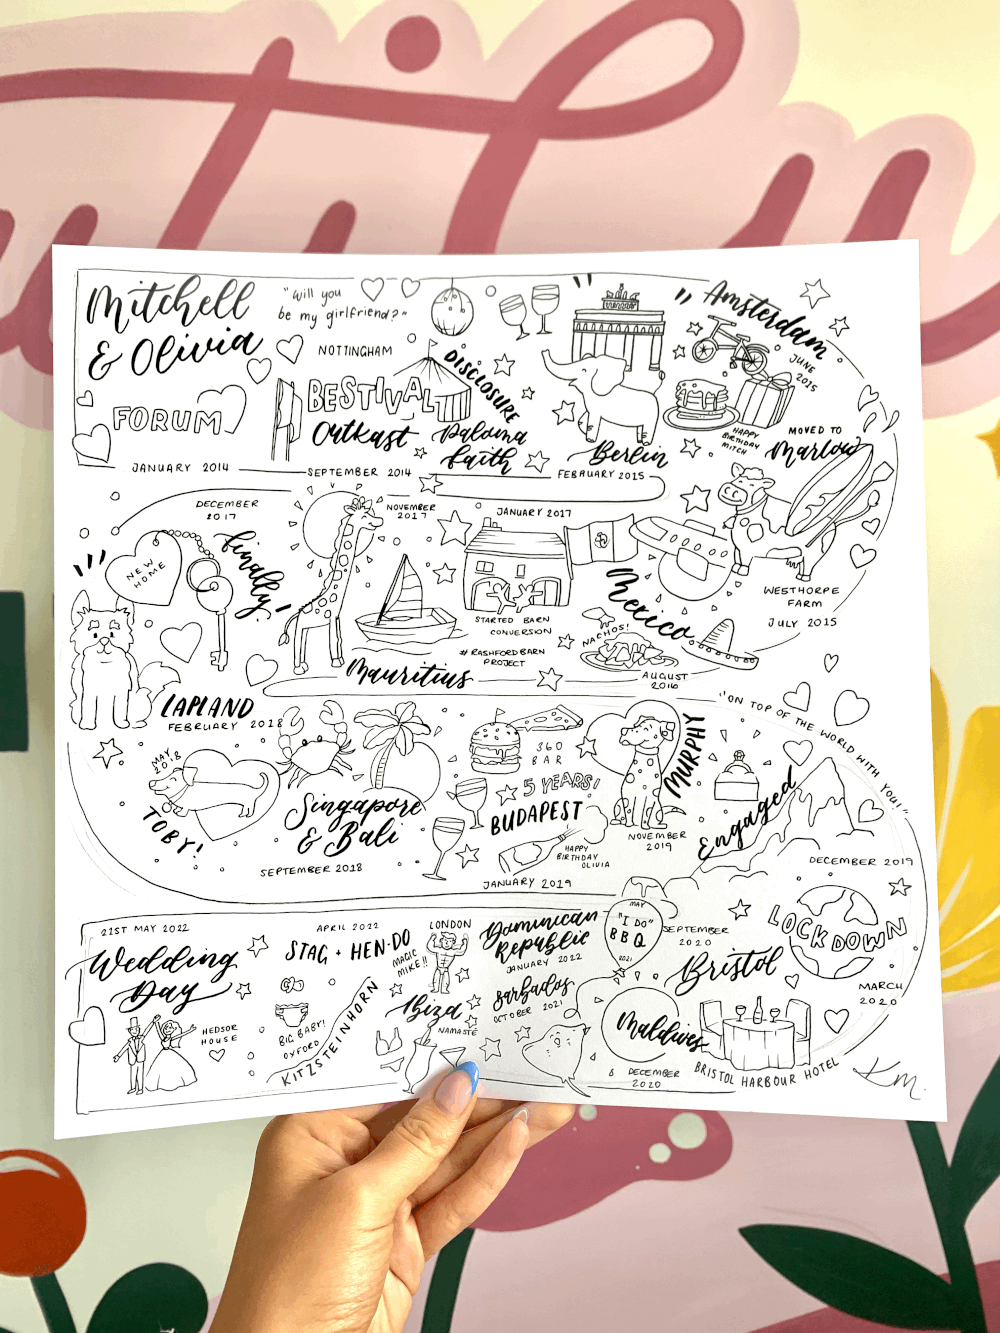 Mitchell
& Olivia
"Will you
be my girlfriend?"
NOTTINGHAM
FORUM
JANUARY 2014
BESTIVAL
Outkast
DISCLOSURE
Paloma
Faith
SEPTEMBER 2014
Berlin
FEBRUARY 2015
Amsterdam
JUNE
2015
HAPPY
BIRTHDAY
MITCH
MOVED TO
Marlow
WESTHORPE
FARM
JULY 2015
Mexico
NACHOS!
AUGUST
2016
JANUARY 2017
STARTED BARN
CONVERSION
#RASHFORDBARN
PROJECT
NOVEMBER
2017
Mauritius
DECEMBER
2017
finally!
NEW
HOME
LAPLAND
FEBRUARY 2018
MAY
2018
TOBY!
Singapore
& Bali
SEPTEMBER 2018
360
BAR
5 YEARS!
BUDAPEST
HAPPY
BIRTHDAY
OLIVIA
JANUARY 2019
MURPHY
NOVEMBER
2019
"ON TOP OF THE WORLD WITH YOU!"
Engaged
DECEMBER 2019
LOCKDOWN
MARCH
2020
SEPTEMBER
2020
Bristol
BRISTOL HARBOUR HOTEL
Maldives
DECEMBER
2020
MAY
"I DO"
BBQ
2021
Dominican
Republic
JANUARY 2022
Barbados
OCTOBER 2021
LONDON
MAGIC
MIKE!!
Ibiza
NAMASTE
APRIL 2022
STAG + HEN-DO
BIG BABY!
OXFORD
KITZSTEINHORN
21ST MAY 2022
Wedding
Day
HEDSOR
HOUSE
KM.